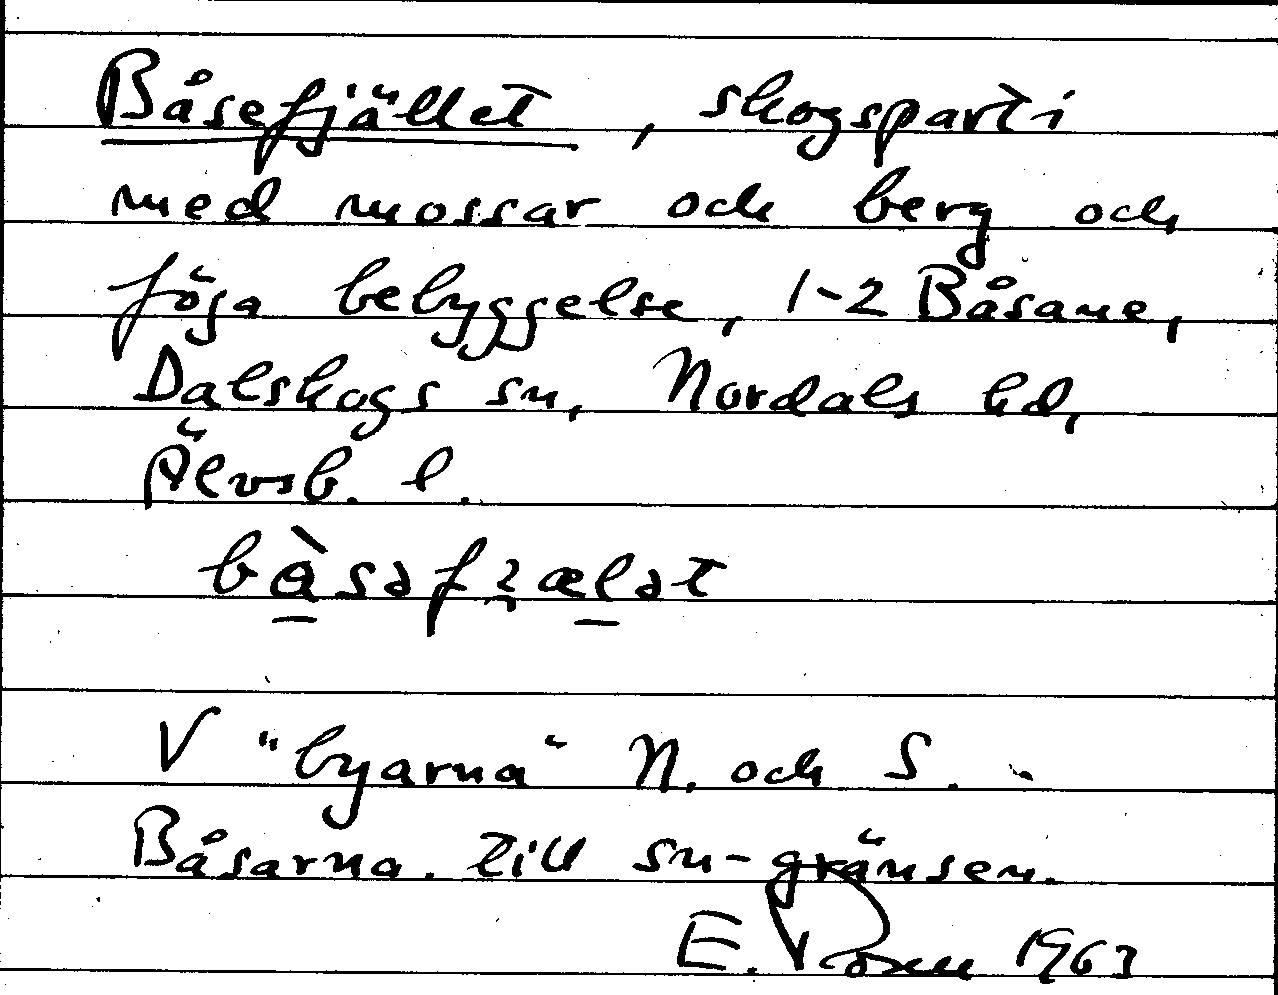 Båsefjället, skogsparti
med mossar och berg och
föga bebyggelse, 1-2 Båsane,
Dalskogs sn, Nordals hd,
Älvsb. l.
bå̀səfȷælət
V "byarna" N. och S.
Båsarna. till sn-gränsen.
E. 1963